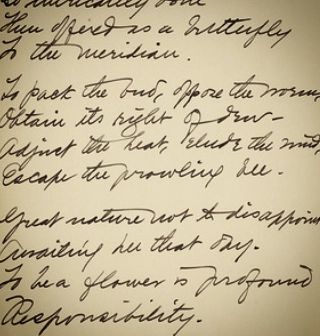 So intricately done
Then offered as a Butterfly
To the meridian.
To pack the bud, oppose the worm,
Obtain its right of dew—
Adjust the heat, elude the wind,
Escape the prowling bee.
Great nature not to disappoint
Awaiting her that day.
To be a flower is profound
Responsibility.